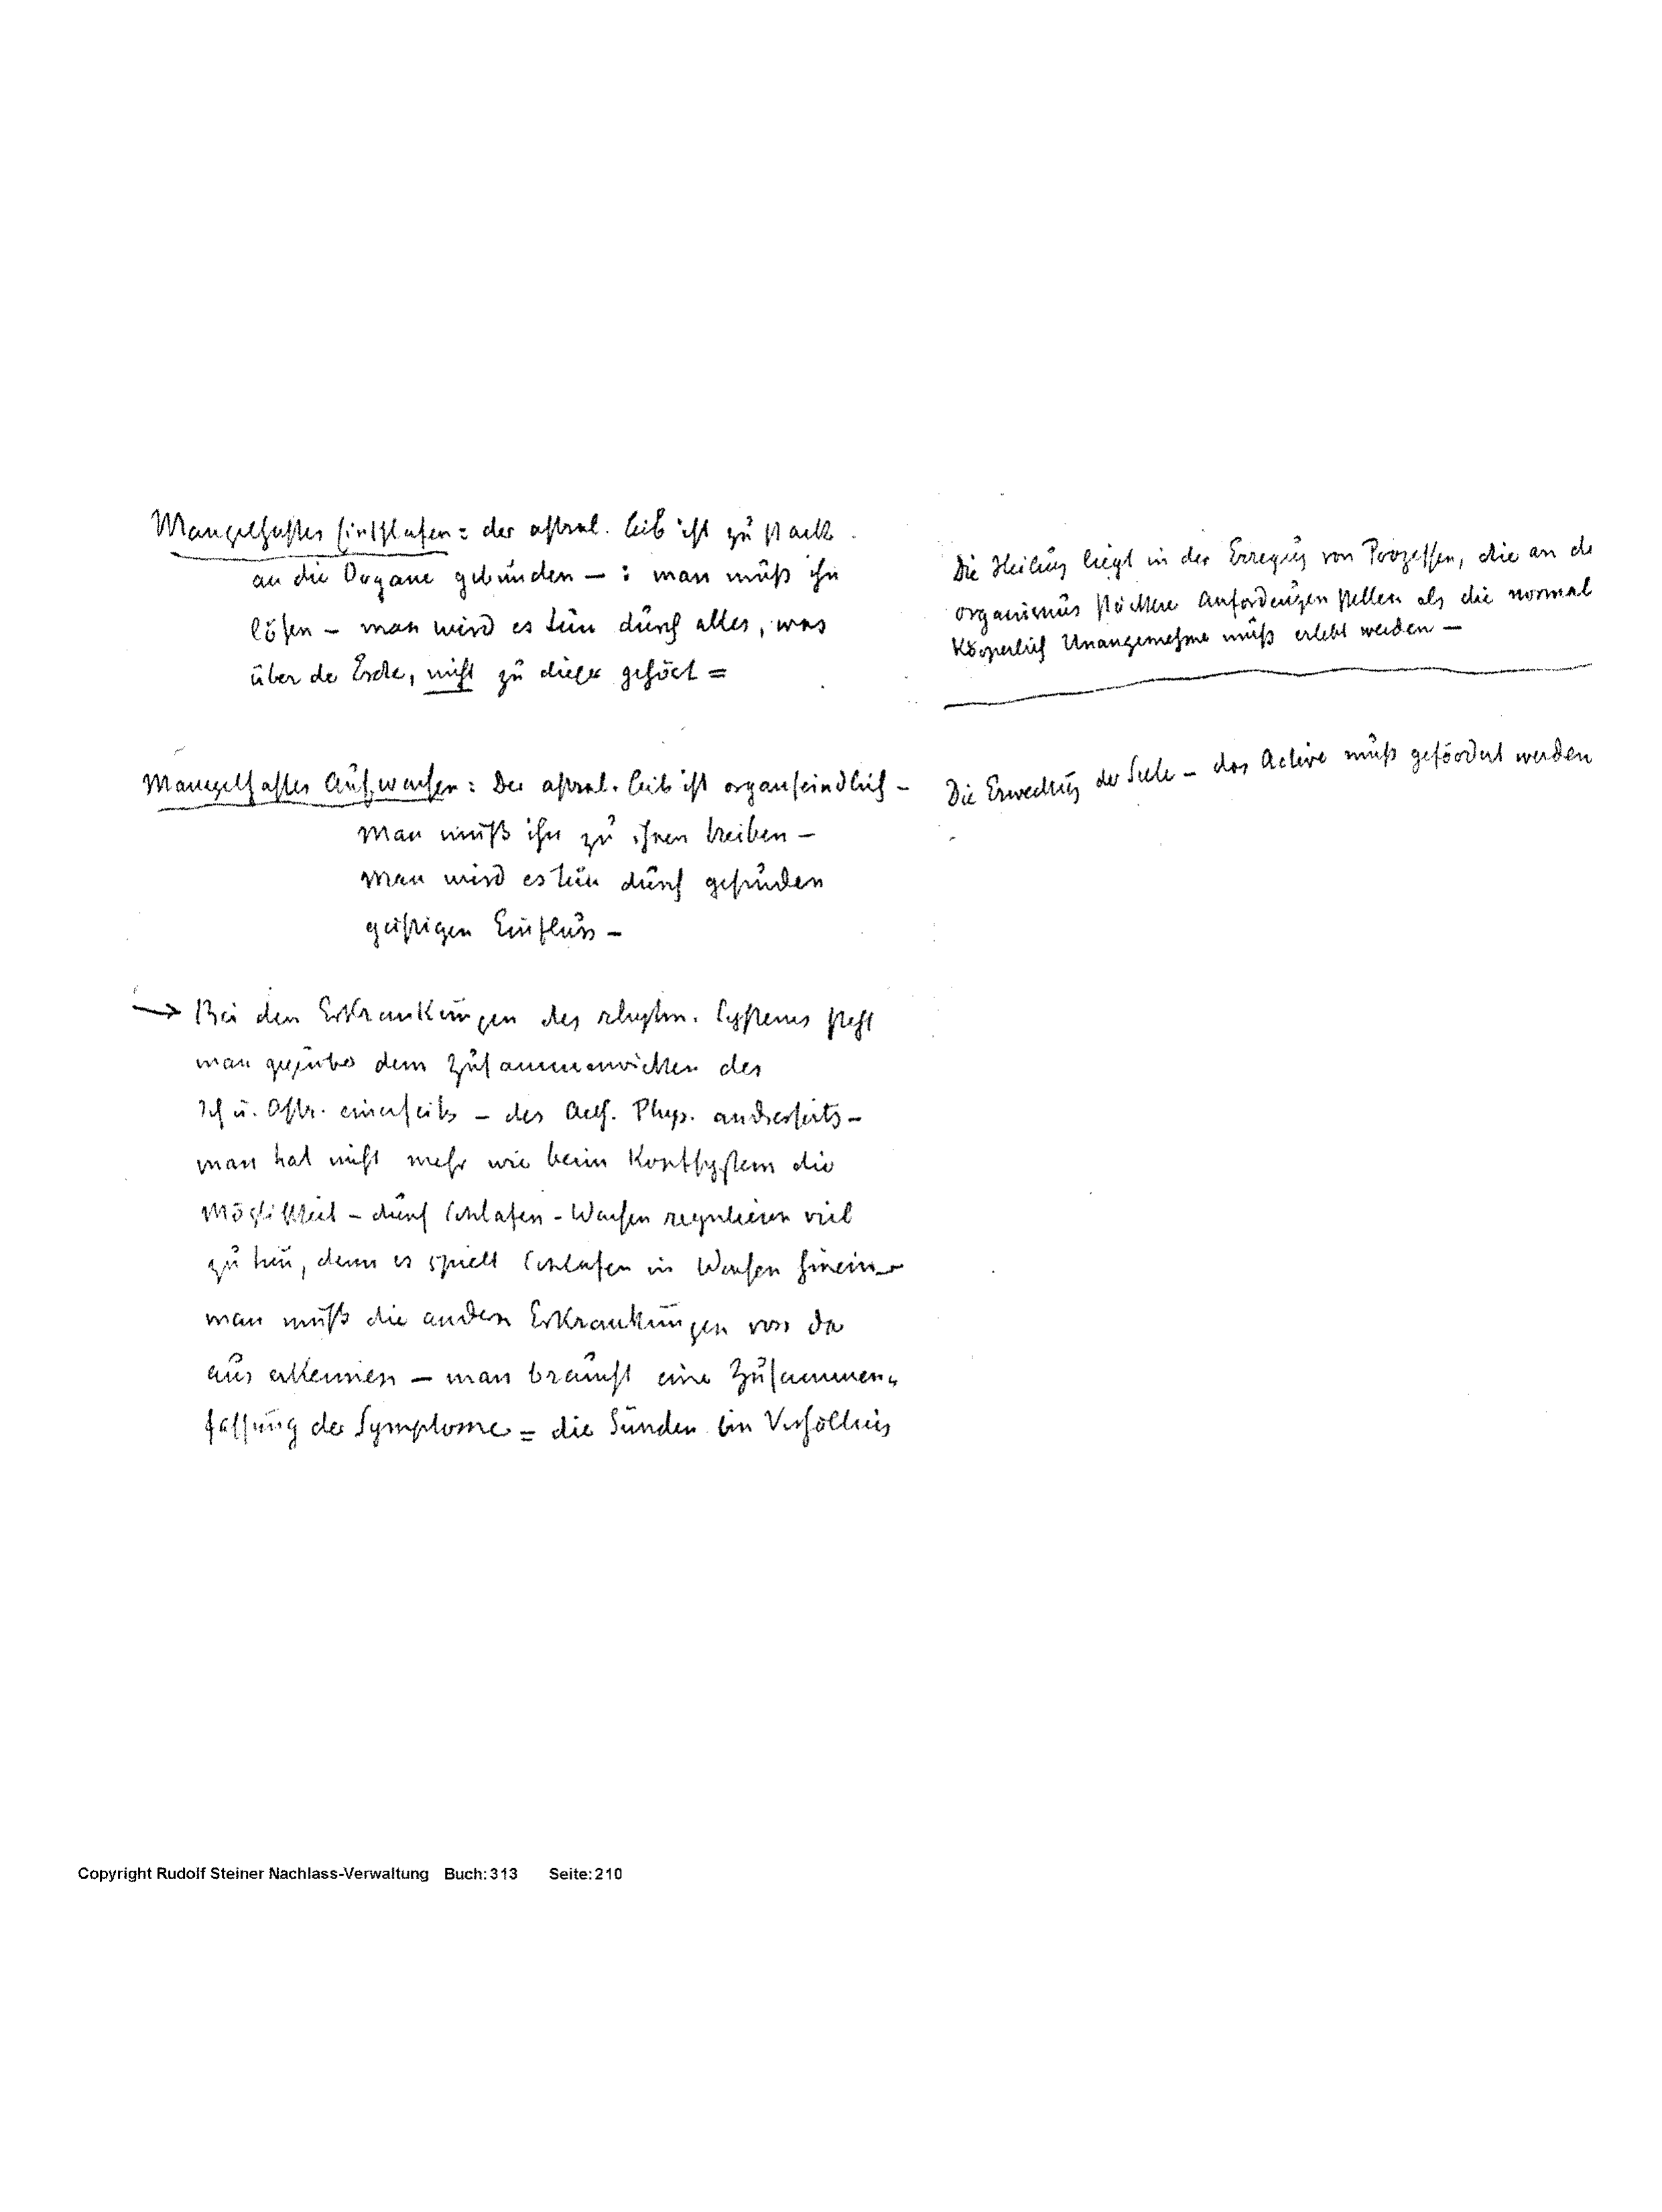 Mangelhaftes Einschlafen: der astral. Leib ist zu stark
an die Organe gebunden – : man muß ihn
lösen – man wird es tun durch alles, was
über der Erde, nicht zu dieser gehört =
Mangelhaftes Aufwachen: Der astral. Leib ist organfeindlich –
man muß ihn zu ihnen treiben –
man wird es tun durch gesunden
geistigen Einfluss –
→ Bei den Erkrankungen des rhythm. Systemes steht
man gegenüber dem Zusammenwirken des
Ich u. Astr. einerseits – des Aeth. Phys. andrerseits –
man hat nicht mehr wie beim Kopfsystem die
Möglichkeit – durch Schlafen - Wachen regulieren viel
zu tun, denn es spielt Schlafen in Wachen hinein –
man muß die andern Erkrankungen von da
aus erkennen – man braucht eine Zusammen=
fassung der Symptome = die Verhältnis
Die Heilung liegt in der Erregung von Prozessen, die an de
Organismus stärkere Anforderungen stellen als die normal
Körperlich Unangenehme muß erlebt werden –
Die Erweckung der Seele – das Active muß gefördert werden
Copyright Rudolf Steiner Nachlass-Verwaltung Buch: 313 Seite: 210